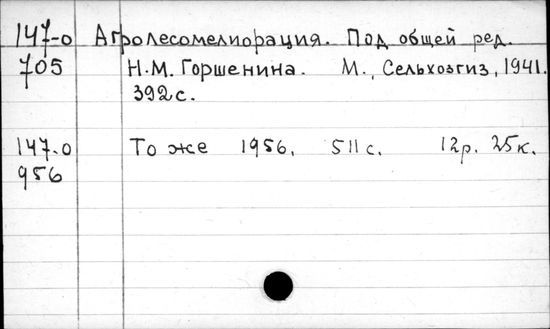 147-0 Агролесомелиорация. Под общей ред.
705 Н.М. Горшенина. М., Сельхозгиз, 1941.
392 с.
147-0 То же 1956. 511 с. 12р. 25к.
956